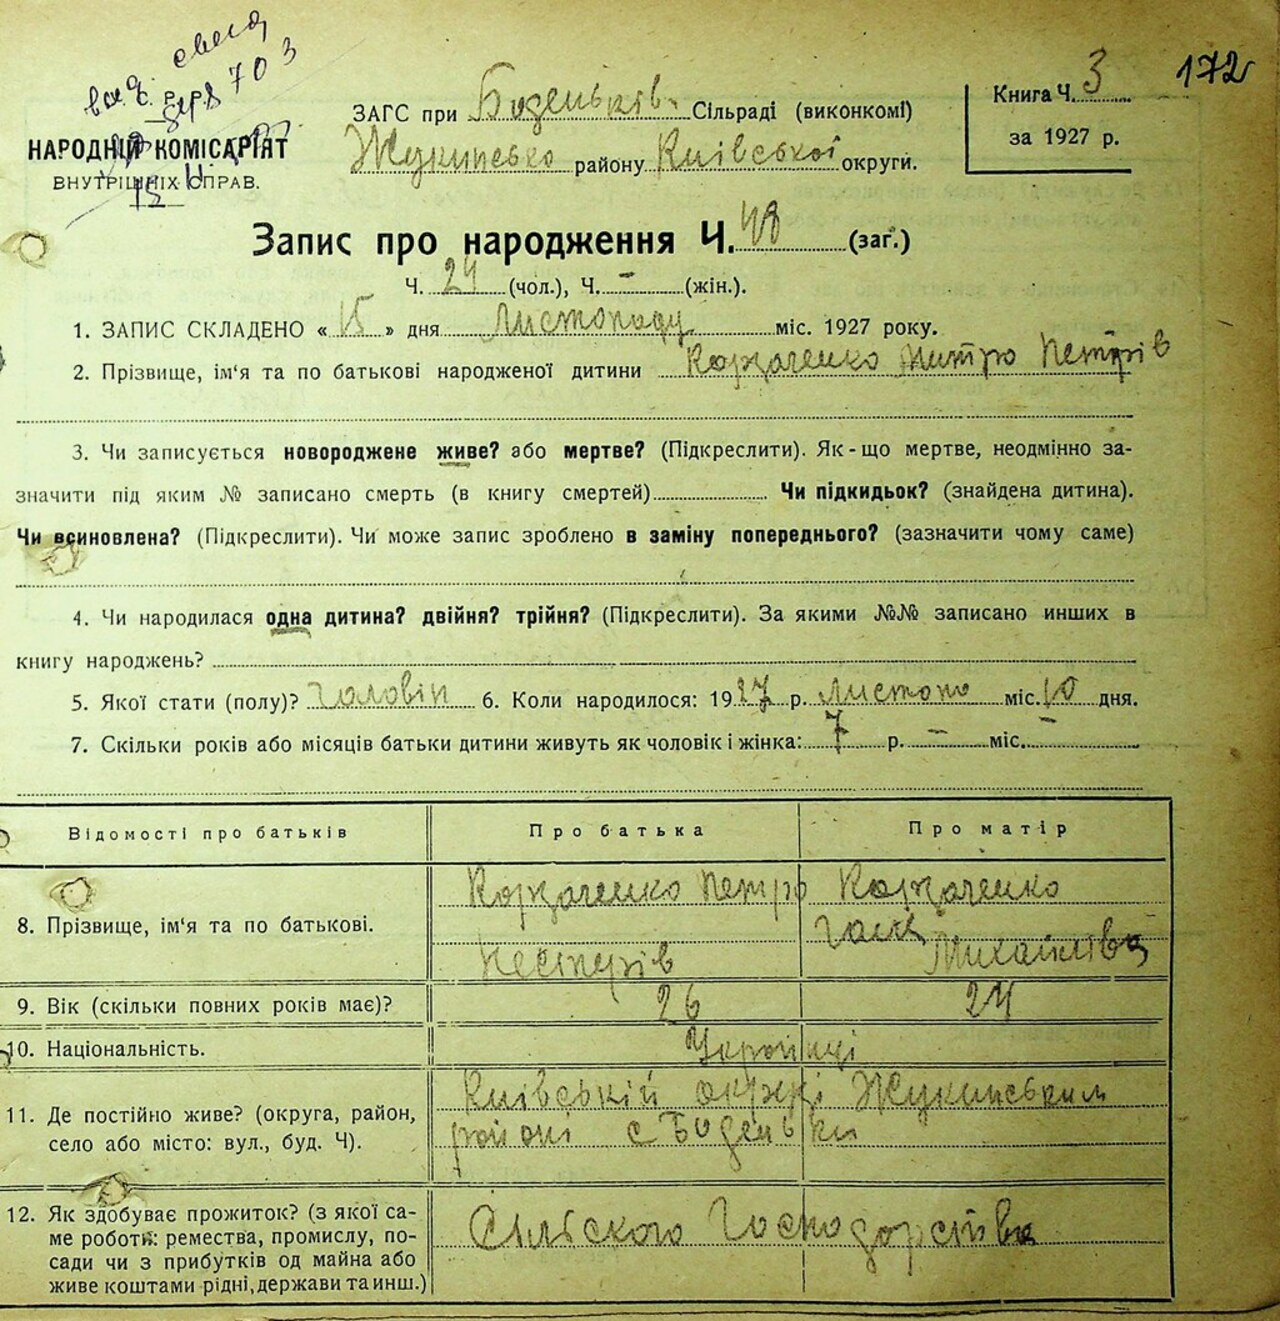 вид. свид
703
172
У. С. Р. Р.
НАРОДНІЙ КОМІСАРІЯТ
ВНУТРІШНІХ СПРАВ.
ЗАГС при Боденьків. Сільраді (виконкомі)
Жукинсько району Київської округи.
Книга Ч. 3
за 1927 р.
Запис про народження Ч. 48 (заг.)
Ч. 24 (чол.), Ч. – (жін.).
1. ЗАПИС СКЛАДЕНО « 15 » дня Листопаду міс. 1927 року.
2. Прізвище, ім'я та по батькові народженої дитини Корзаченко Митро Петрів
3. Чи записується новороджене живе? або мертве? (Підкреслити). Як-що мертве, неодмінно за-
значити під яким № записано смерть (в книгу смертей) Чи підкидьок? (знайдена дитина).
Чи всиновлена? (Підкреслити). Чи може запис зроблено в заміну попереднього? (зазначити чому саме)
4. Чи народилася одна дитина? двійня? трійня? (Підкреслити). За якими №№ записано инших в
книгу народжень?
5. Якої стати (полу)? Чоловіч 6. Коли народилося: 1927 р. Листопо міс. 10 дня.
7. Скільки років або місяців батьки дитини живуть як чоловік і жінка: 7 р. – міс. –
Відомості про батьків Про батька Про матір
8. Прізвище, ім'я та по батькові. Корзаченко Петро Корзаченко
Несторів Галя Михайлівна
9. Вік (скільки повних років має)? 26 24
10. Національність. Українці
11. Де постійно живе? (округа, район, Київській окрузі Жукинським
село або місто: вул., буд. Ч). районі с Боденьки
12. Як здобуває прожиток? (з якої са- Сільского Господорства
ме роботи: ремества, промислу, по-
сади чи з прибутків од майна або
живе коштами рідні, держави та инш.)